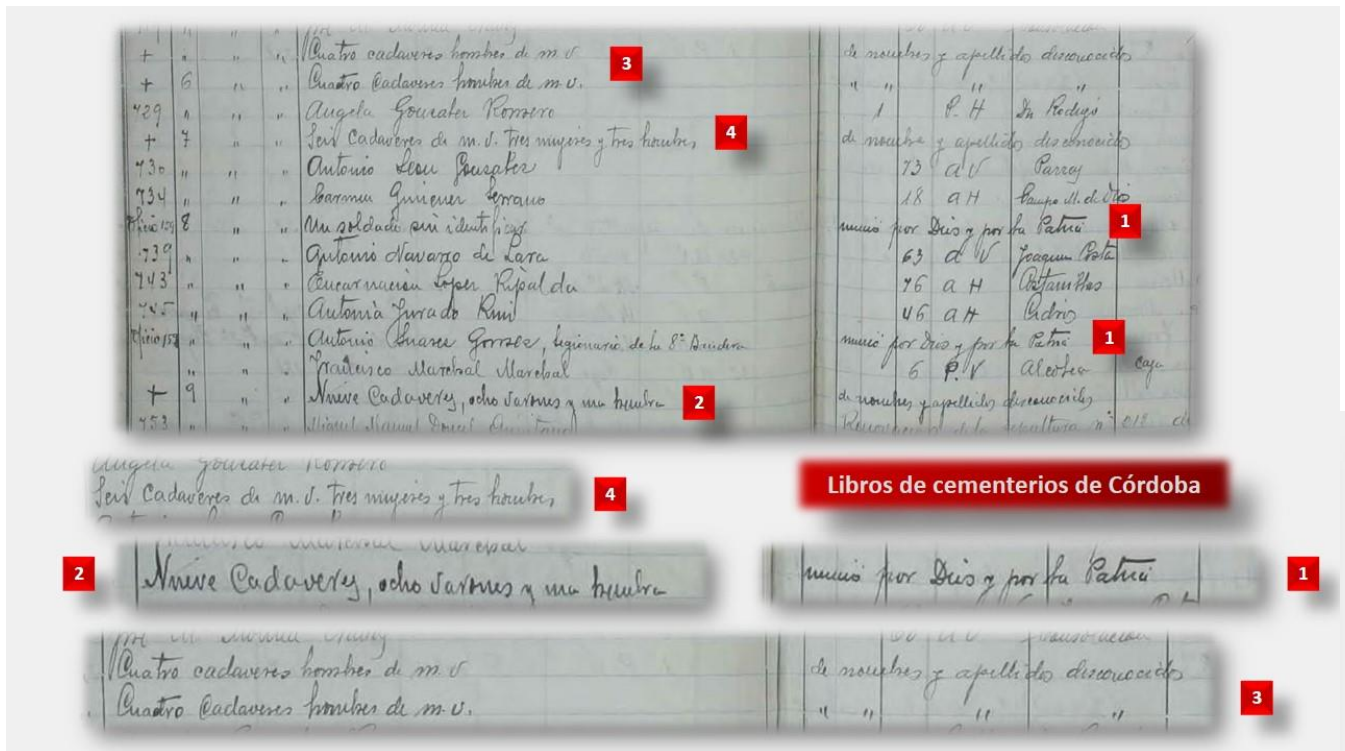 + " " " Cuatro cadaveres hombres de m. v. de nombres y apellidos desconocidos
3
+ 6 " " Cuatro Cadaveres hombres de m. v. " " " "
729 " " " Angela Gonzalez Romero 1 P. H Sn Rodrigo
+ 7 " " Seis Cadaveres de m. v. tres mujeres y tres hombres de nombre y apellidos desconocido
4
730 " " " Antonio Leon Gonzalez 73 a V Parras
734 " " " Carmen Gimenez Serrano 18 a H Campo M. de Dios
8 " " Un soldado sin identificar murió por Dios y por la Patria
1
739 " " " Antonio Navarro de Lara 63 a V Joaquin Costa
743 " " " Encarnación Lopez Ripalda 76 a H
745 " " " Antonia Jurado Ruiz 46 a H
" " " Antonio Suarez Gomez, legionario de la 8ª Bandera murió por Dios y por la Patria
1
" " " Francisco Marchal Marchal 6 P. V Alcolea Caja
+ 9 " " Nueve Cadaveres, ocho varones y una hembra de nombres y apellidos desconocidos
2
753 Miguel Manuel
Angela Gonzalez Romero
Seis Cadaveres de m. v. tres mujeres y tres hombres
4
Libros de cementerios de Córdoba
2
Nueve Cadaveres, ocho varones y una hembra
murió por Dios y por la Patria
1
Cuatro cadaveres hombres de m. v. de nombres y apellidos desconocidos
Cuatro Cadaveres hombres de m. v. " " " "
3